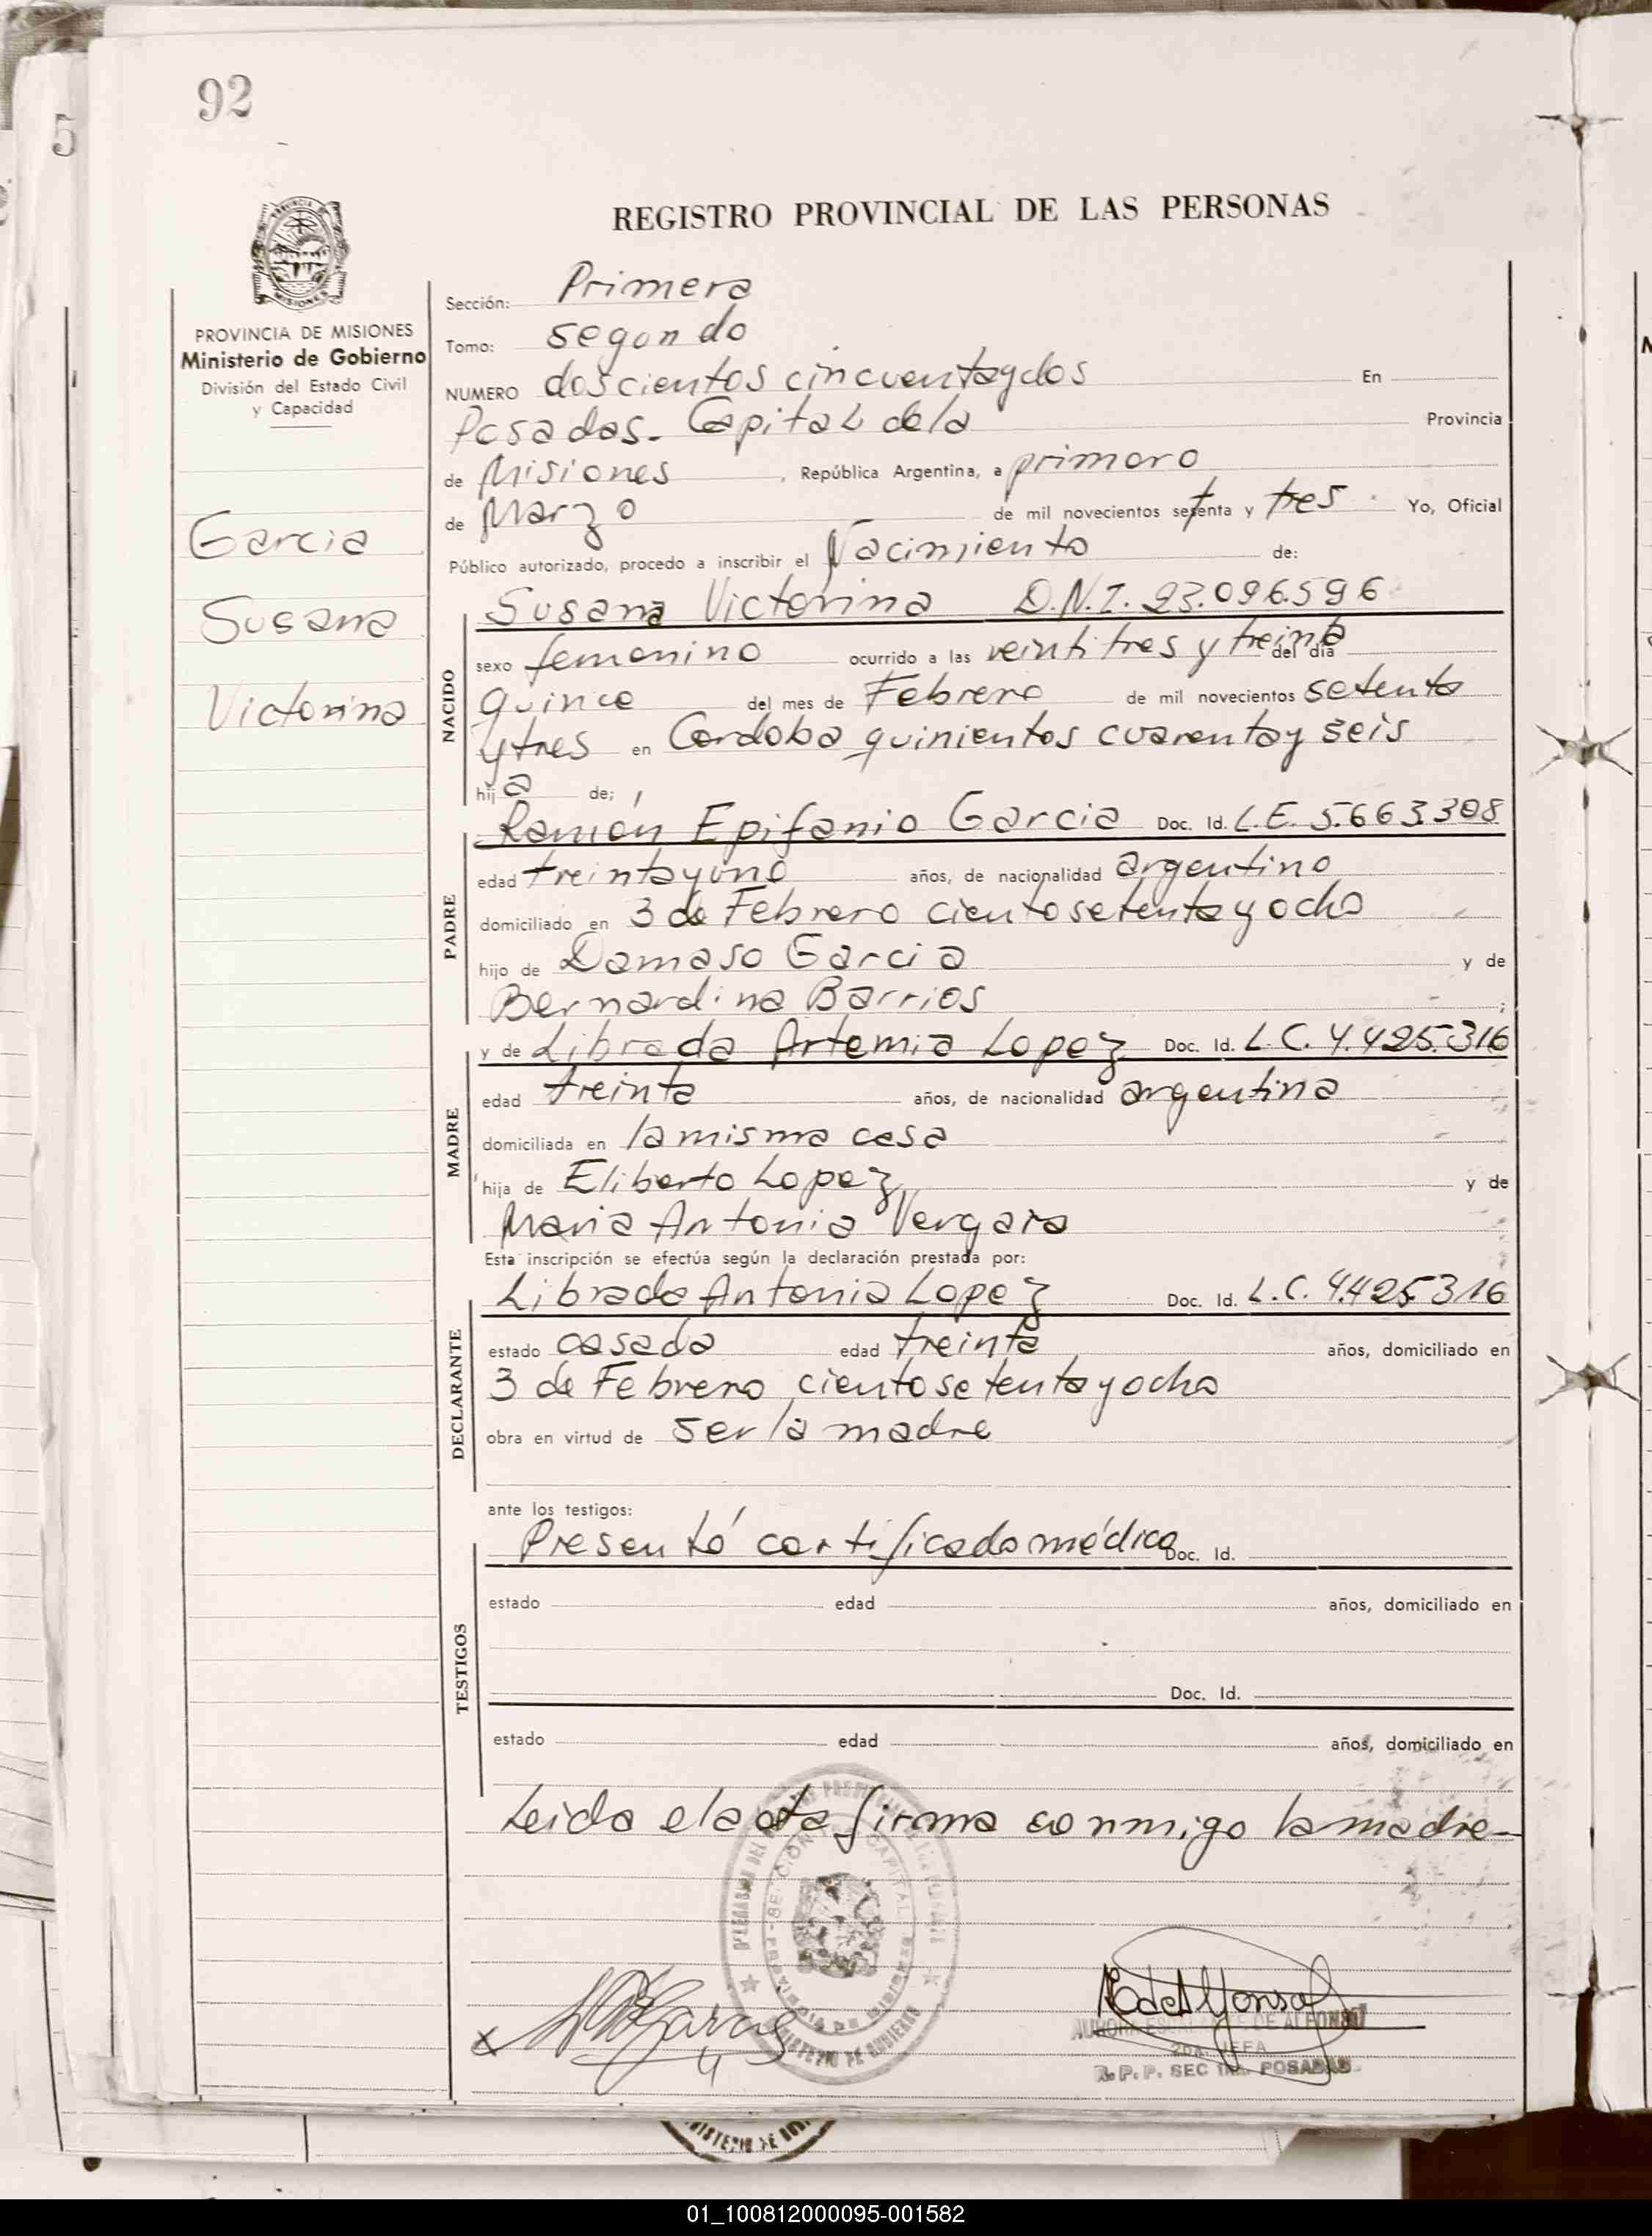 92
5
REGISTRO PROVINCIAL DE LAS PERSONAS
PROVINCIA DE MISIONES
Ministerio de Gobierno
División del Estado Civil
y Capacidad
Garcia
Susana
Victorina
Sección: Primera
Tomo: segundo
NUMERO doscientos cincuentaydos En
Posadas. Capital dela Provincia
de Misiones, República Argentina, a primero
de Marzo de mil novecientos setenta y tres. Yo, Oficial
Público autorizado, procedo a inscribir el Nacimiento de:
NACIDO
Susana Victorina D.N.I. 23.096.596
sexo femenino ocurrido a las veintitres y treinta del día
quince del mes de Febrero de mil novecientos setenta
ytres en Cordoba quinientos cuarentay seis
hija de;
PADRE
Ramón Epifanio Garcia Doc. Id. L.E. 5.663.308
edad treintayuno años, de nacionalidad argentino
domiciliado en 3 de Febrero cientosetentayocho
hijo de Damaso Garcia y de
Bernardina Barrios ;
MADRE
y de Librada Artemia Lopez Doc. Id. L.C. 4.425.316
edad treinta años, de nacionalidad argentina
domiciliada en la misma casa
hija de Eliberto Lopez y de
Maria Antonia Vergara
Esta inscripción se efectúa según la declaración prestada por:
DECLARANTE
Librada Antonia Lopez Doc. Id. L.C. 4.425.316
estado casada edad treinta años, domiciliado en
3 de Febrero cientosetentayocho
obra en virtud de ser la madre
ante los testigos:
TESTIGOS
Presentó certificado médico Doc. Id.
estado edad años, domiciliado en
Doc. Id.
estado edad años, domiciliado en
Leida el acta firma conmigo la madre-
AURORA ESCALANTE DE ALFONSO
2DA. JEFA
R. P. P. SEC 1RA. POSADAS
MINISTERIO DE GOBIERNO
01_100812000095-001582